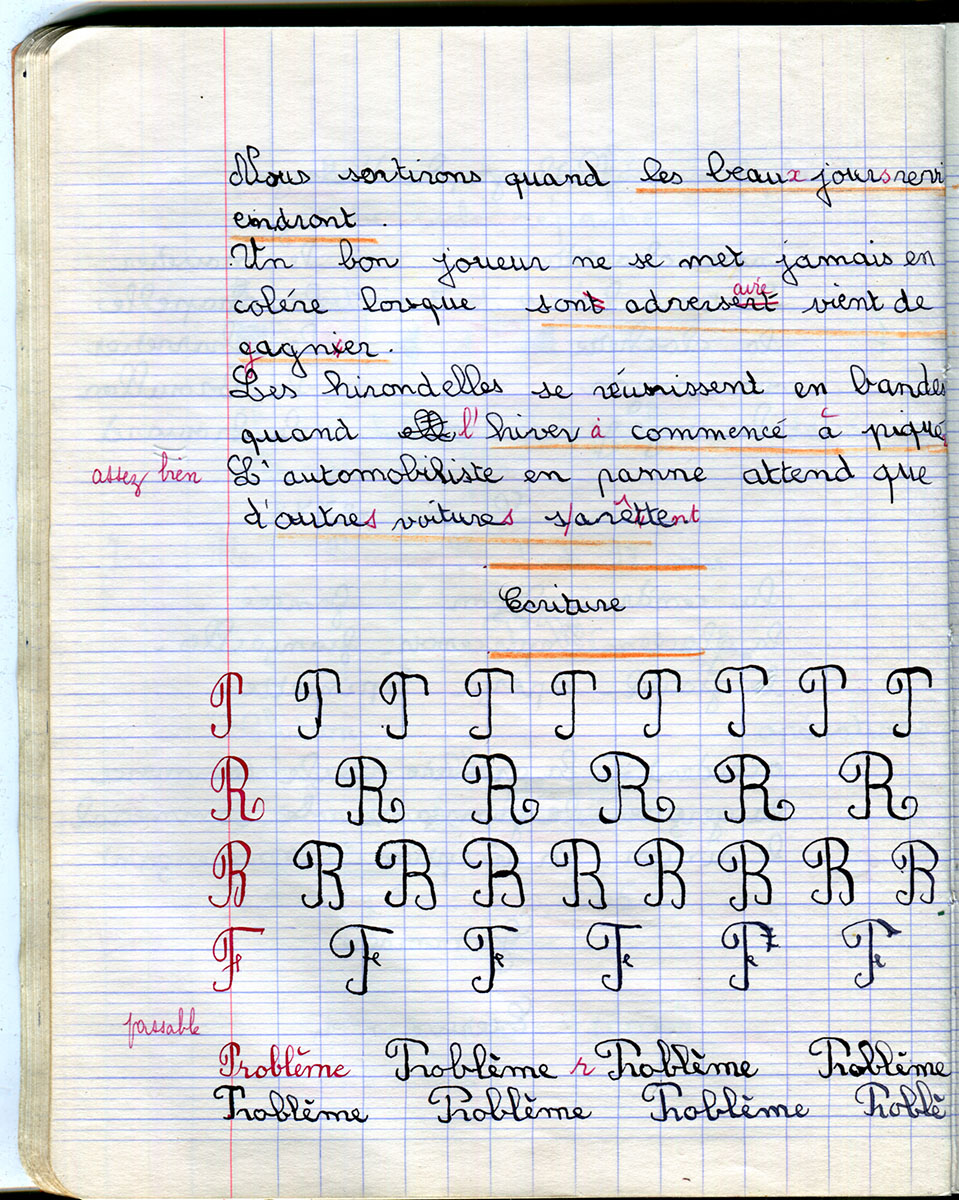 Nous sortirons quand les beaux jours revi
endront.
Un bon joueur ne se met jamais en
colére lorsque sont adversert aire vient de
gagnier.
Les hirondelles se réunissent en bandes
quand l'hiver à commencé à piqué
assez bien L'automobiliste en panne attend que
d'autres voitures s'arrêttent
Ecriture
P P P P P P P P P
R R R R R R
B B B B B B B B B
F F F F F F
passable
Problème Problème r Problème Problème
Problème Problème Problème Problè